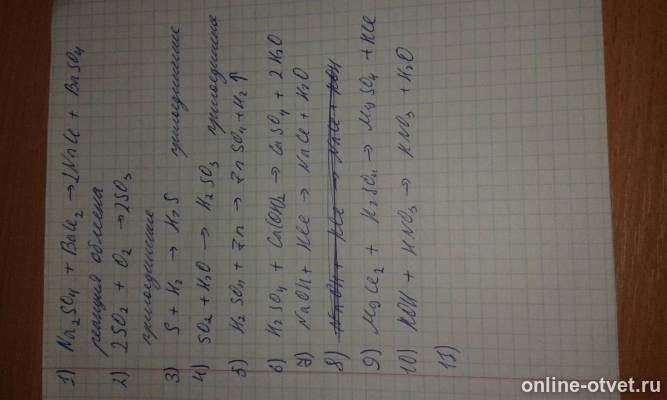 1) Na₂SO₄ + BaCl₂ → 2NaCl + BaSO₄
реакция обмена
2) 2SO₂ + O₂ → 2SO₃
присоединение
3) S + H₂ → H₂S присоединение
4) SO₂ + H₂O → H₂SO₃ присоединение
5) H₂SO₄ + Zn → ZnSO₄ + H₂↑
6) H₂SO₄ + Ca(OH)₂ → CaSO₄ + 2H₂O
7) NaOH + HCl → NaCl + H₂O
8) NaOH + HCl → NaCl + HOH
9) MgCl₂ + H₂SO₄ → MgSO₄ + HCl
10) KOH + HNO₃ → KNO₃ + H₂O
11)
online-otvet.ru